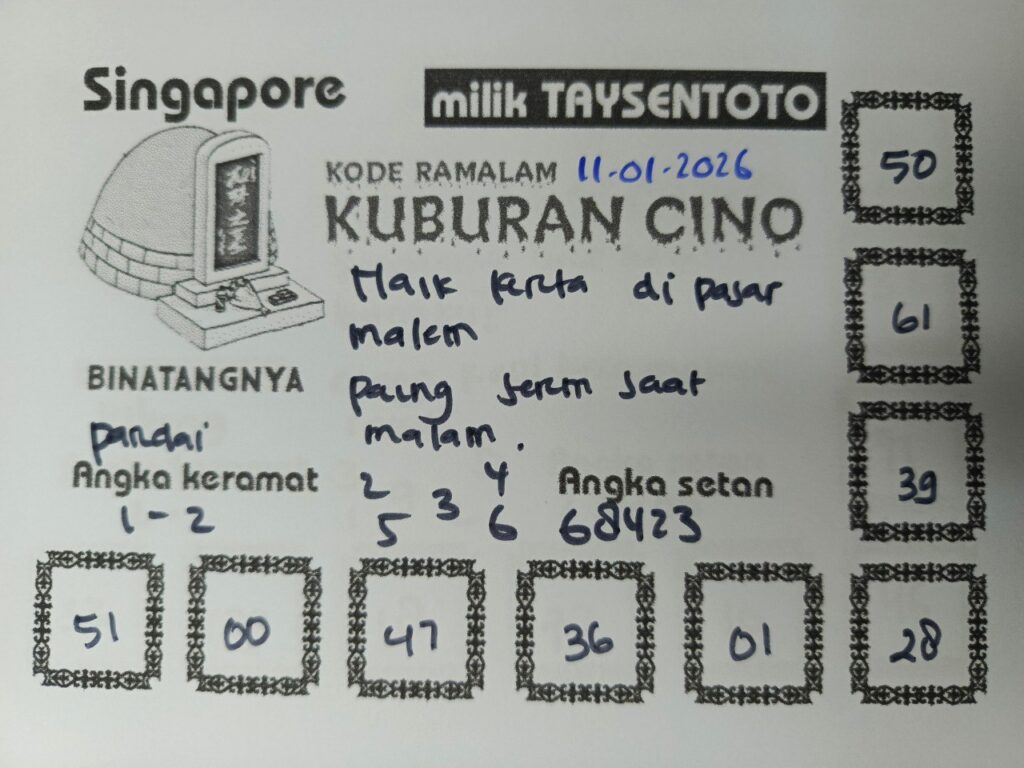 Singapore
milik TAYSENTOTO
KODE RAMALAM 11-01-2026
KUBURAN CINO
Naik kereta di pasar
malem
paling serem saat
malam.
BINATANGNYA
pandai
Angka keramat
1-2
2 4
5 3 6
Angka setan
68423
50
61
39
51 00 47 36 01 28